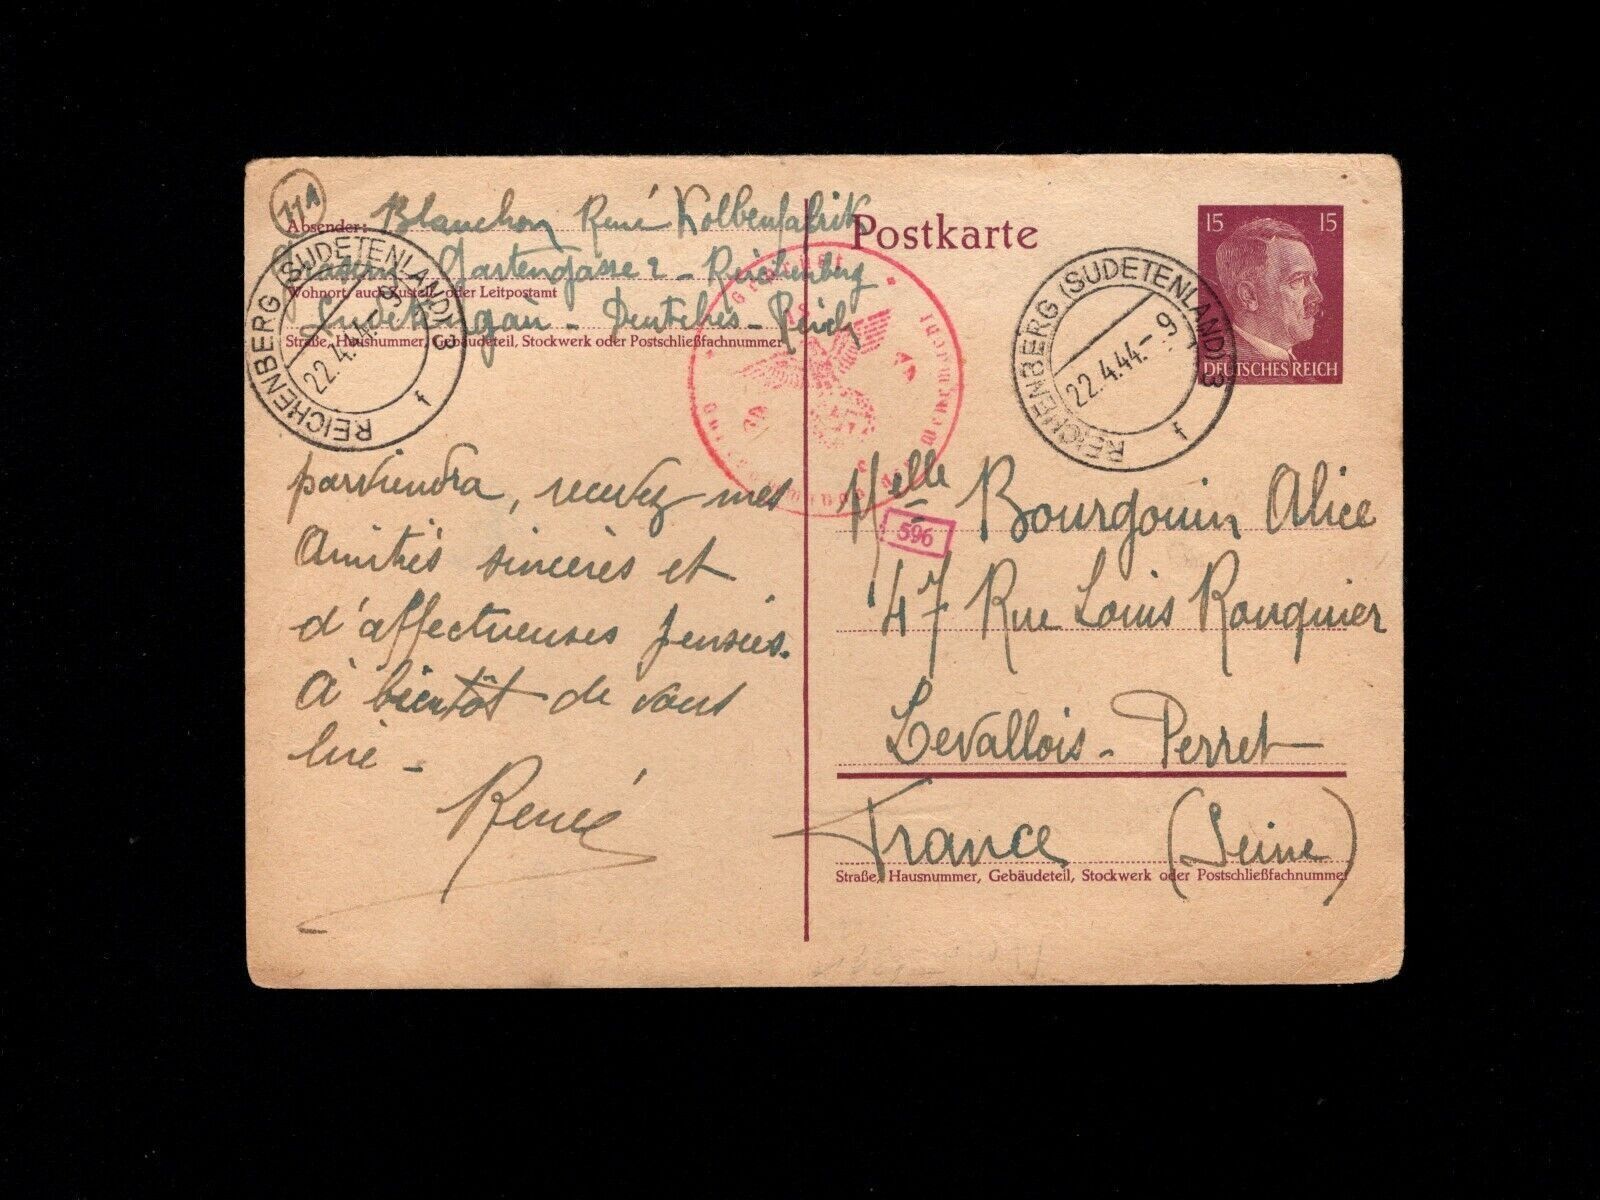 11A
Absender: Blanchon René Kolbenfabrik
Gartengasse 2 - Reichenberg
Wohnort, auch Zustell- oder Leitpostamt
Sudetengau - Deutches - Reich
Straße, Hausnummer, Gebäudeteil, Stockwerk oder Postschließfachnummer
REICHENBERG (SUDETENLAND) 3
22.4.44.-9
f
parviendra, recevez mes
Amitiés sincères et
d'affectueuses pensées.
à bientôt de vous
lire -
René
Postkarte
15 15
DEUTSCHES REICH
REICHENBERG (SUDETENLAND) 3
22.4.44.-9
f
Geöffnet
Oberkommando der Wehrmacht
c
Melle Bourgouin Alice
596
47 Rue Louis Rouquier
Levallois - Perret
France (Seine)
Straße, Hausnummer, Gebäudeteil, Stockwerk oder Postschließfachnummer